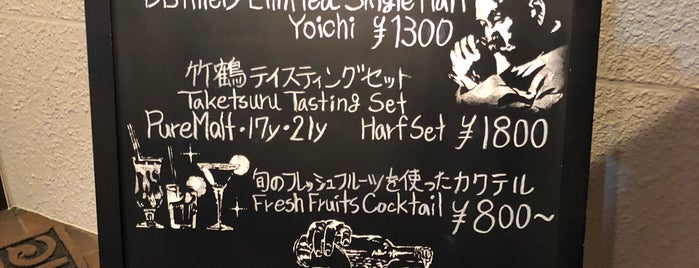 Distillery Limited Single Malt
Yoichi ¥1300
竹鶴テイスティングセット
Taketsuru Tasting Set
PureMalt・17y・21y Harf Set ¥1800
旬のフレッシュフルーツを使ったカクテル
Fresh Fruits Cocktail ¥800~